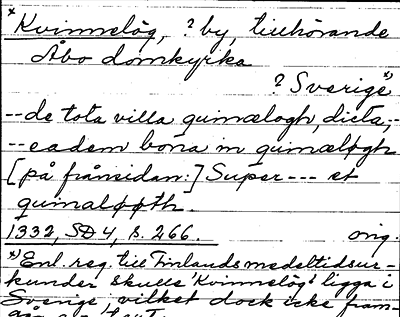 *Kvinnelög, ? by, tillhörande
Åbo domkyrka
? Sverige*)
-- de tota villa quinælogh, dicta, --
-- eadem bona in quinæløgh
[på frånsidan:] Super --- et
quinaløøth.
1332, SD 4, s. 266. orig.
*) Enl. reg. till Finlands medeltidsur-
kunder skulle 'Kvinnelög' ligga i
Sverige, vilket dock icke fram-